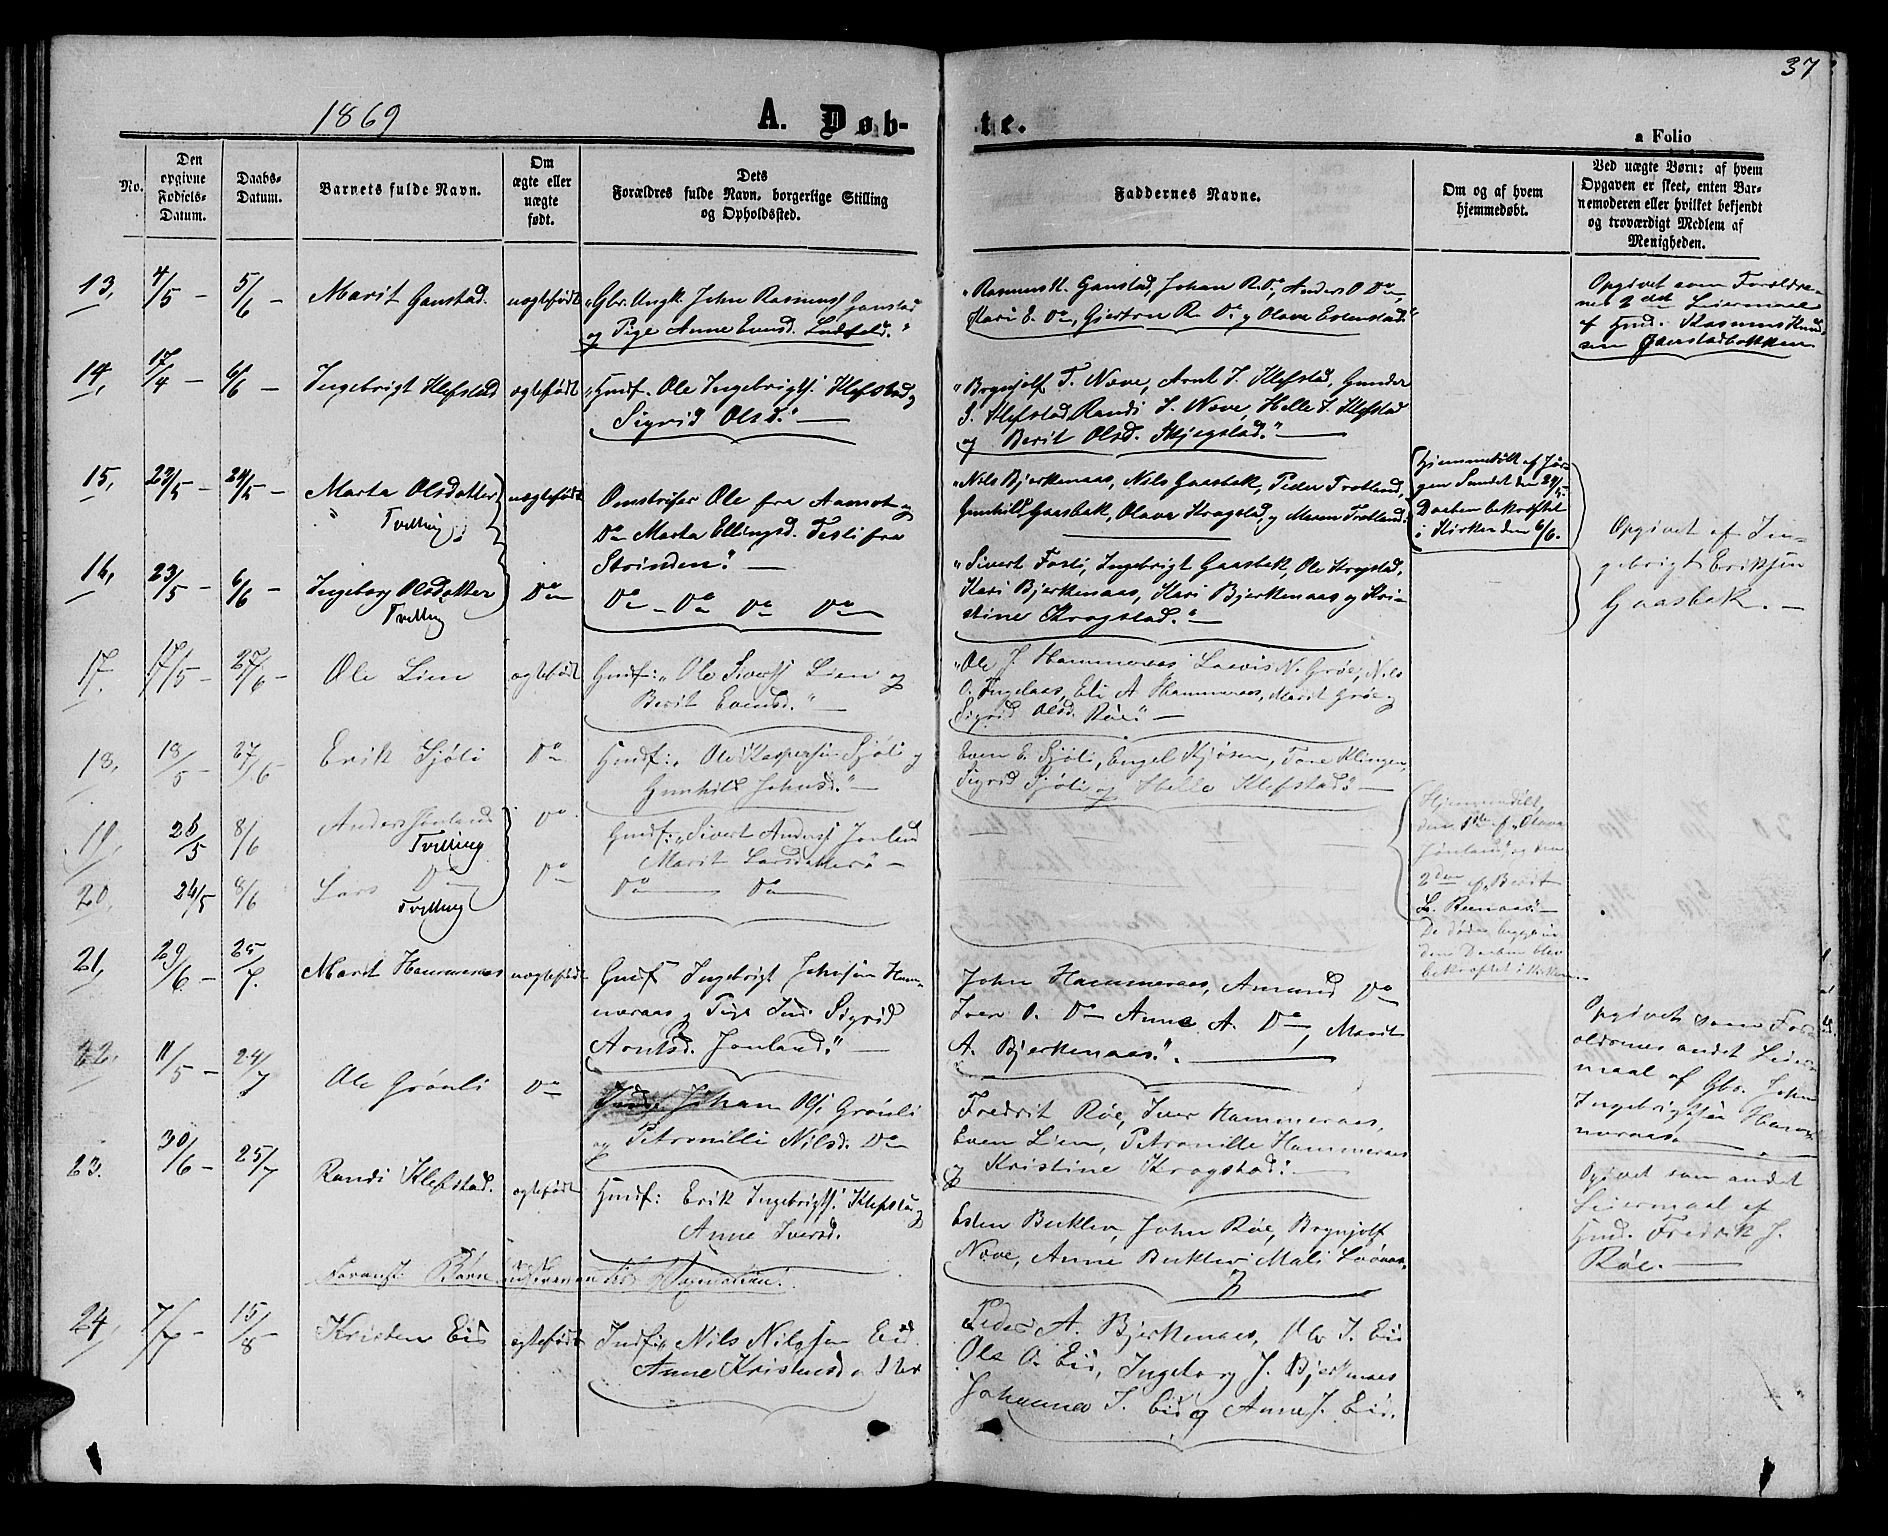 37
1869
A. Døb-
te.
a Folio
No.
Den
opgivne
Fødsels-
Datum.
Daabs-
Datum.
Barnets fulde Navn.
Om
ægte eller
uægte
født.
Dets
Forældres fulde Navn, borgerlige Stilling
og Opholdssted.
Faddernes Navne.
Om og af hvem
hjemmedøbt.
Ved uægte Børn: af hvem
Opgaven er skeet, enten Bar-
nemoderen eller hvilket bekjendt
og troværdigt Medlem af
Menigheden.
13, 4/5 – 5/6 – Marit Ganstad. uægtefødt
"Gbr. Ungk. John Rasmuss Ganstad
og Pige Anne Evensd.
"Rasmus K. Ganstad, Johan R. Do, Anders O Do,
Kari E. Do, Gjertru R. Do og Olave Estenstad."
Opgivet som Foreldre-
nes 2det Leiermaal
af Gmd. Rasmus Knud-
sen
14, 17/4 – 6/6 – Ingebrigt Klefstad ægtefødt
"Gmdf. Ole Ingebrigts. Klefstad og
Sigrid Olsd." —
"Brynjolf T. Næve, Arnt I. Klefstad, Gunder
S. Klefstad, Randi I. Næve, Helle I. Klefstad
og Berit Olsd. Skjegstad." —
15, 23/5 – 24/5 – Marta Olsdatter uægtefødt
" Tvilling
Omstreifer Ole fra Aamot og
Do Marta Ellingsd. Fesli fra
Strinden." —
"Nils Bjerkenaas, Nils Gaasbak, Peder Trotland,
Gunhild Gaasbak, Olava Krogstad, og Maren Trotland.
Hjemmedøbt af Jør-
gen Sundet den 24/5.
Daaben bekræftet
i Kirken den 6/6.
Opgivet af In-
gebrigt Eriksen
Gaasbak. —
16, 23/5 – 6/6 – Ingeborg Olsdatter Do
Tvilling
Do – Do Do Do
"Sivert Fosli, Ingebrigt Gaasbak, Ole Krogstad,
Kari Bjerkenaas, Kari Bjerkenaas og Kri-
stine Krogstad." —
17. 17/5 – 27/6 – Ole Lien ægtefødt
Gmdf: "Ole Siverts Lien og
Berit Evensd." —
"Ole J. Hammeraas Laevis N. Grøe, Nils
O. Engelaas, Eli A Hammeraas, Marit Grøe og
Sigrid Olsd. Røe" —
18, 18/5 – 27/6 – Erik Sjøli Do
Gmdf: "Ole Kaspersen Sjøli og
Gunhild Johnsd." —
Even E. Sjøli, Engel Kjøsen, Tore Klingen,
Sigrid Sjøli og Helle Klefstad". —
19, 23/5 8/6 Anders Jønland Do
Tvilling
Gmdf: "Sivert Anderss Jønland
Marit Larsdatter" —
20, 24/5 8/6 Lars Do Do
Tvilling
Do — Do
Hjemmedøbt,
den 1ste af "Olava
Jønland", og den
2den af "Berit
L. Reenaas". —
den Daaben blev
bekræftet i Kirken.
21, 29/6 – 25/7. Marit Hammeraas uægtefødt
Gmdf Ingebrigt Johnsen Ham-
meraas og Pige Ind. Sigrid
Arntsd. Jønland." —
John Hammeraas, Amund Do
Iver O. Do Anne A. Do, Marit
A. Bjerkenaas". —
Opgivet som For-
ældrenes andet Leier-
maal af Gbr. John
Ingebrigtsen Ham-
meraas. —
22. 11/5 – 24/7 Ole Grønli Do
Johan Ols. Grønli
og Petronilli Nilsd. Do
Fredrik Røe, Iver Hammeraas,
Even Lien, Petronille Hammeraas
og Kristine Krogstad. —
Opgivet som andet
Leiermaal af
Gmd. Fredrik J.
Røe. —
23. 30/6 – 25/7 Randi Klefstad. ægtefødt
Gmdf: Erik Ingebrigts. Klefstad og
Anne Iversd.
Esten Buklev, John Røe, Brynjolf
Næve, Anne Buklev Mali
Foranst. Børn
24, 7/7 – 15/8 – Kristen Eid ægtefødt
Indf: "Nils Nilssen Eid
Anne Kristensd.
Peder A. Bjerkenaas, Ole I. Eid
Ole O. Eid, Ingeborg J. Bjerkenaas
Johanna I. Eid og Anne J. Eid.